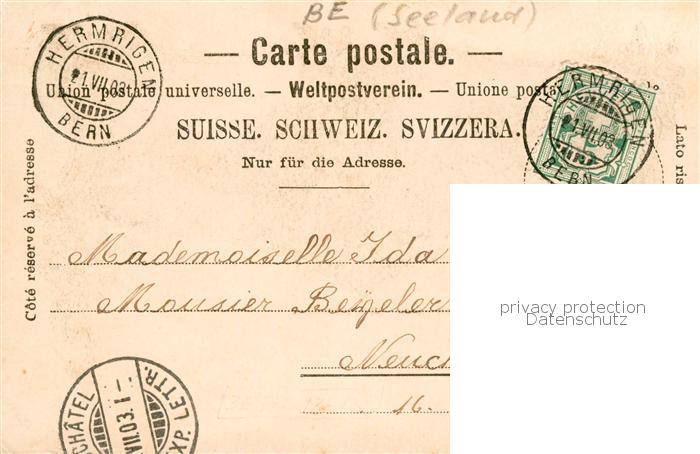 BE (Seeland)
— Carte postale. —
Union postale universelle. — Weltpostverein. — Unione posta
SUISSE. SCHWEIZ. SVIZZERA.
Nur für die Adresse.
HERMRIGEN
21.VII.03
BERN
HERMRIGEN
21.VII.03
BERN
Côté réservé à l'adresse
Lato ris
Mademoiselle Ida
Mousier Beyeler
Neuc
16.
CHÂTEL
VII.03.1-
XP. LETTR.
privacy protection
Datenschutz